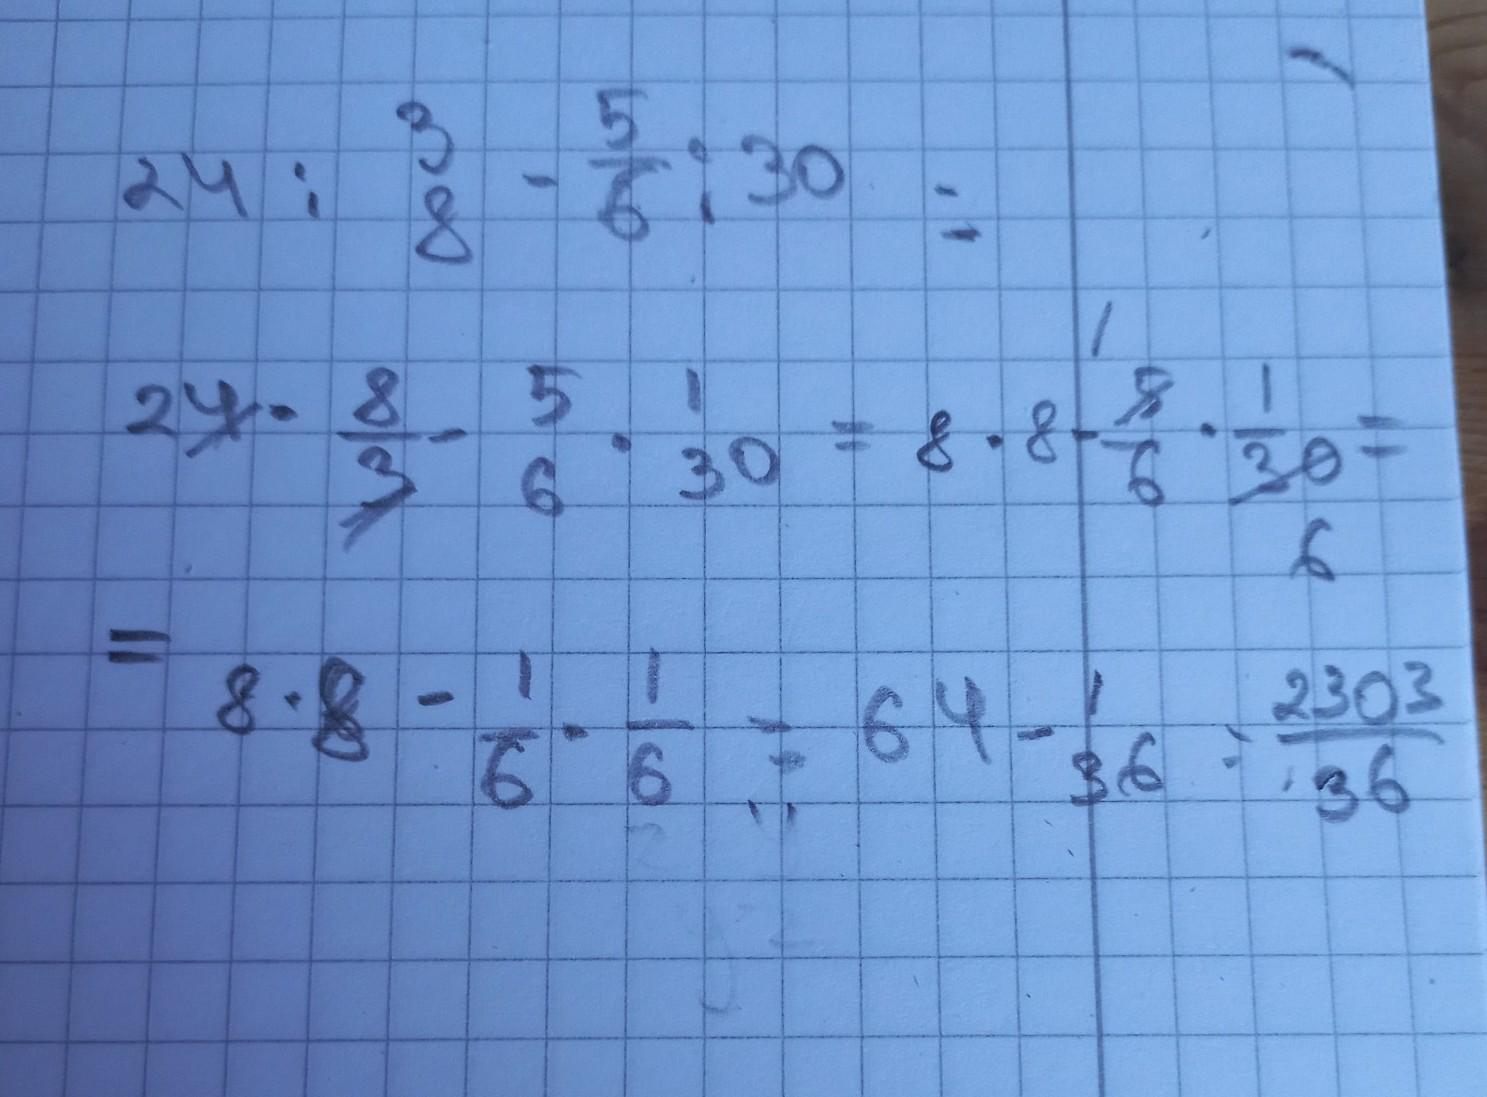 24 : 3/8 - 5/6 : 30 =
24 · 8/3 - 5/6 · 1/30 = 8 · 8 - 5/6 · 1/30 = 1 6
= 8 · 8 - 1/6 · 1/6 = 64 - 1/36 = 2303/36